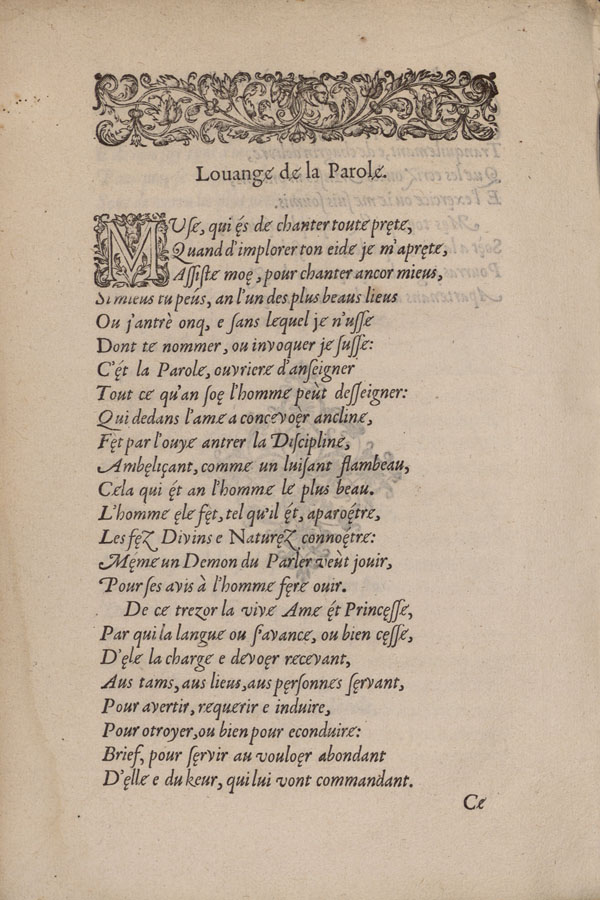 Louangȩ dȩ la Parolȩ.
MUſȩ, qui ę́s dȩ chanter toutȩ prę́tȩ,
Quand d'implorer ton eidȩ jȩ m'aprę́tȩ,
Aſsiſtȩ moę, pour chanter ancor mieus,
Si mieus tu peus, an l'un des plus beaus lieus
Ou j'antrè onq, e ſans lȩquel jȩ n'uſſȩ
Dont tȩ nommer, ou invoquer jȩ ſuſſȩ:
C'ę́t la Parolȩ, ouvrierȩ d'anſeigner
Tout cȩ qu'an ſoę l'hommȩ peùt deſſeigner:
Qui dȩdans l'amȩ a concȩvoęr anclinȩ,
Fęt par l'ouyȩ antrer la Diſciplinȩ,
Ambęliçant, commȩ un luiſant flambeau,
Cȩla qui ę́t an l'hommȩ lȩ plus beau.
L'hommȩ ęlȩ fęt, tel qu'il ę́t, aparoę́trȩ,
Les fęz Divins e Naturęz connoę́trȩ:
Mę́mȩ un Demon du Parler veùt jouir,
Pour ſes avis à l'hommȩ fęrȩ ouir.
De cȩ trezor la vivȩ Amȩ ę́t Princęſſȩ,
Par qui la languȩ ou ſ'avancȩ, ou bien cęſſȩ,
D'ęlȩ la chargȩ e dȩvoęr rȩcȩvant,
Aus tams, aus lieus, aus pęrſonnȩs ſęrvant,
Pour avertir, rȩquerir e induirȩ,
Pour otroyer, ou bien pour econduirȩ:
Brief, pour ſęrvir au vouloęr abondant
D'ęllȩ e du keur, qui lui vont commandant.
Cȩ